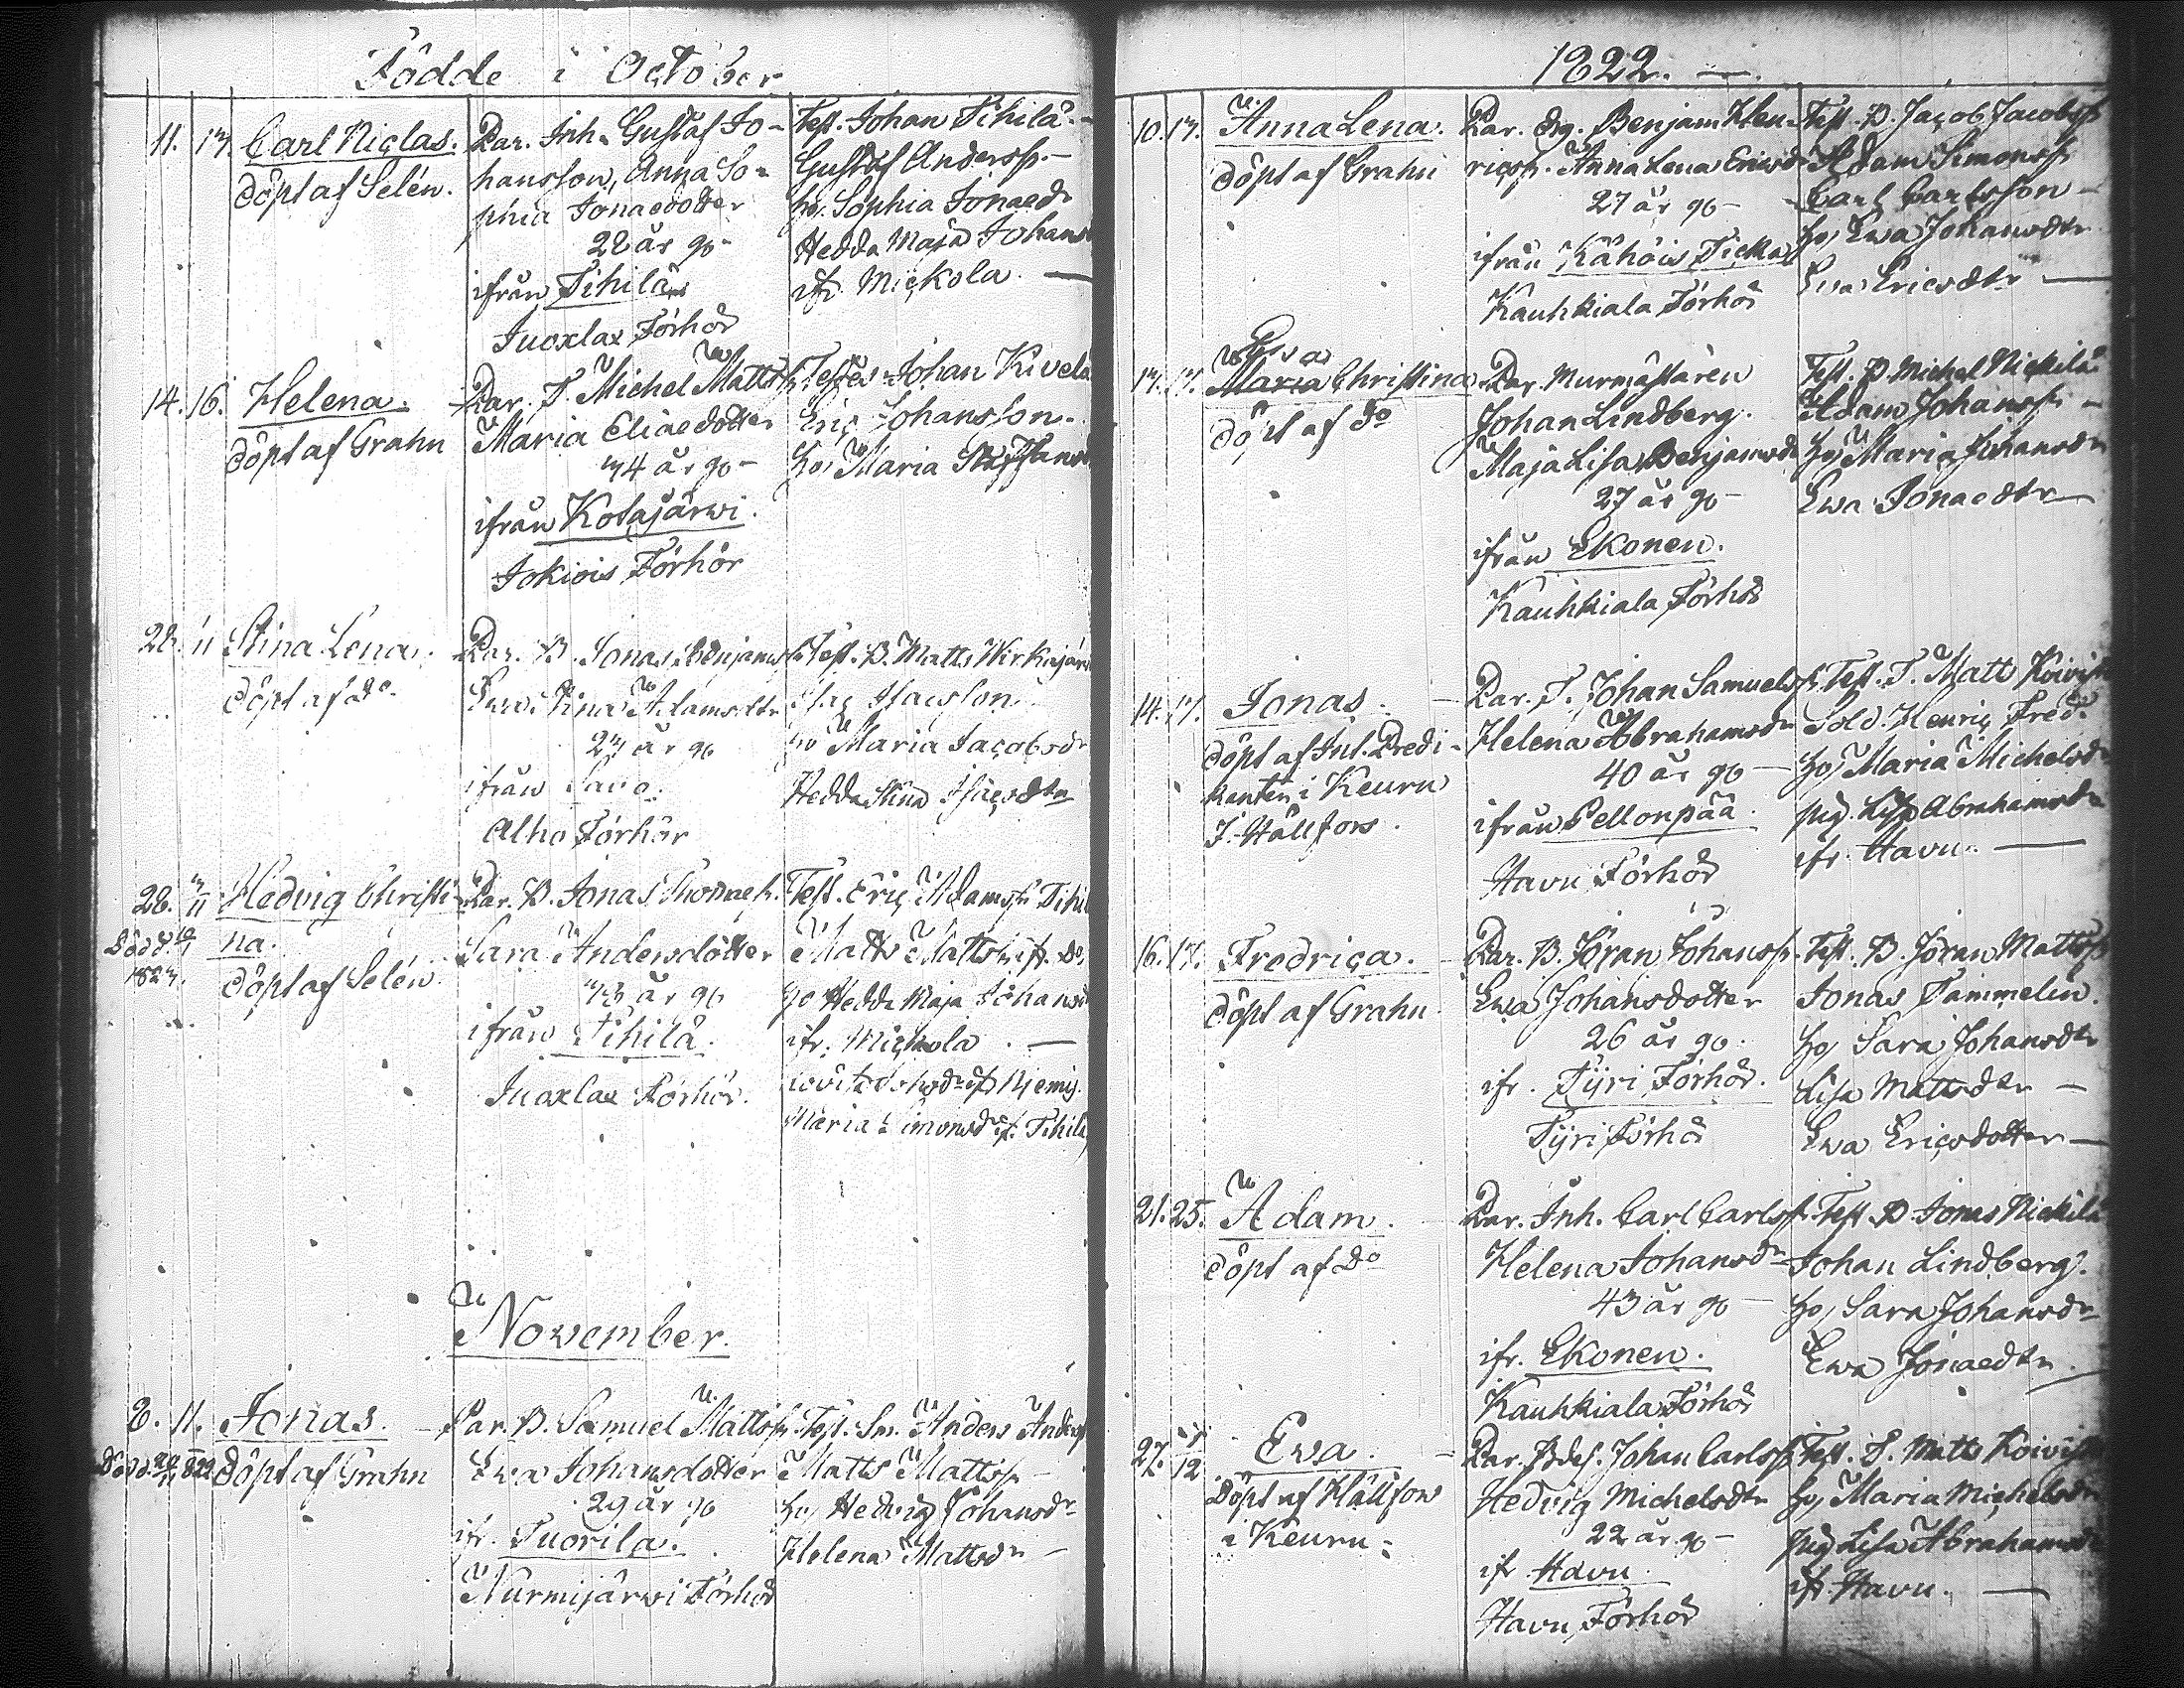 Födde i October
11. 13. Carl Niclas.
döpt af Selén.
Par. Inh. Gustaf Jo-
hansson, Anna So-
phia Jonaedotter
22 år gl
ifrån Tihilä
Juoxlax Förhör
Test. Johan Tihilä
Gustaf Anderss.
Ho, Sophia Jonaedr
Hedda Maja Johansd
ifr. Mickola
14. 16. Helena.
döpt af Grahn
Par. T. Michel Matts
Maria Eliaedotter
34 år gl
ifrån Kotajärwi.
Jokiois Förhör
Testes Johan Kivelä
Eric Johansson.
Ho, Maria Staffansd
28. 11 Stina Lena.
döpt af do
Par. B. Jonas Benjamss
Ewa Stina Adamsdtr
27 år gl
ifrån Savo.
Alho Förhör
Test. B. Matts Wirkajär
Isac Isacsson
Ho Maria Jacobsdr
Hedda Stina Isacsdtr
28. 3/11 Hedvig Christi-
na.
döpt af Selén.
Död d.
1823.
Par. B. Jonas Thomaeh.
Sara Andersdotter
33 år gl
ifrån Tihilä.
Juoxlax Förhör.
Test. Eric Adamss Tihil
Matts Mattss ifr. do
Ho Hedda Maja Johansd
ifr. Mickola
Maria Simonsdr if. Tihilä
November.
8. 11. Jonas.
döpt af Grahn
Par. B. Samuel Mattss
Ewa Johansdotter
29 år gl
ifr. Tuorila.
Nurmijärwi Förhör
Test. Sn. Anders Anderss
Matts Mattss
Ho, Hedvig Johansdr
Helena Mattsdr
1822.
10. 13. Anna Lena.
döpt af Grahn
Par. Drg. Benjam Hen-
ricss. Anna Lena Ericsdr
27 år gl
ifrån Kähöis, Ticka
Kauhkiala Förhör
Test. B. Jacob Jacobss
Adam Simonss
Carl Carlsson
Ho, Ewa Johansdtr
Ewa Ericsdtr
13. 17. Ewa
Maria Christina
döpt af do
Par. Murmästaren
Johan Lindberg.
Maja Lisa Benjamsdr
27 år gl
ifrån Ekonen.
Kauhkiala Förhör
Test. B. Michel Nickilä
Adam Johanss
Ho, Maria Johansdr
Ewa Jonaedtr
14. 17. Jonas.
döpt af Inl. Predi-
kanten i Keuru
J. Hällfors.
Par. T. Johan Samuelss
Helena Abrahamsdr
40 år gl
ifrån Pellonpää
Havu Förhör
Test. T. Matts Koivist
Sold. Henric Fred.
Ho, Maria Michelsdr
Pig. Lisa Abrahamsdr
ifr. Havu.
16. 17. Fredrica.
döpt af Grahn
Par. B. Jöran Johanss.
Ewa Johansdotter
26 år gl.
ifr. Tyri Förhör.
Tyri Förhör
Test. B. Jöran Mattss
Jonas Tammelin.
Ho, Sara Johansdtr
Lisa Mattsdtr
Ewa Ericsdotter
21. 25. Adam.
döpt af do
Par. Inh. Carl Carlss.
Helena Johansdr
43 år gl
ifr. Ekonen.
Kauhkiala Förhör
Test. B. Jonas Nickilä
Johan Lindberg.
Ho, Sara Johansdr
Ewa Jonaedtr
27. Ewa.
Döpt af Hällfors
i Keuru
Par. Bdes. Johan Carlss
Hedvig Michelsdtr
22 år gl
ifr. Havu.
Havu Förhör
Test. T. Matts Koivist
Ho, Maria Michelsdr
Pig. Lisa Abrahamsdr
ifr. Havu.